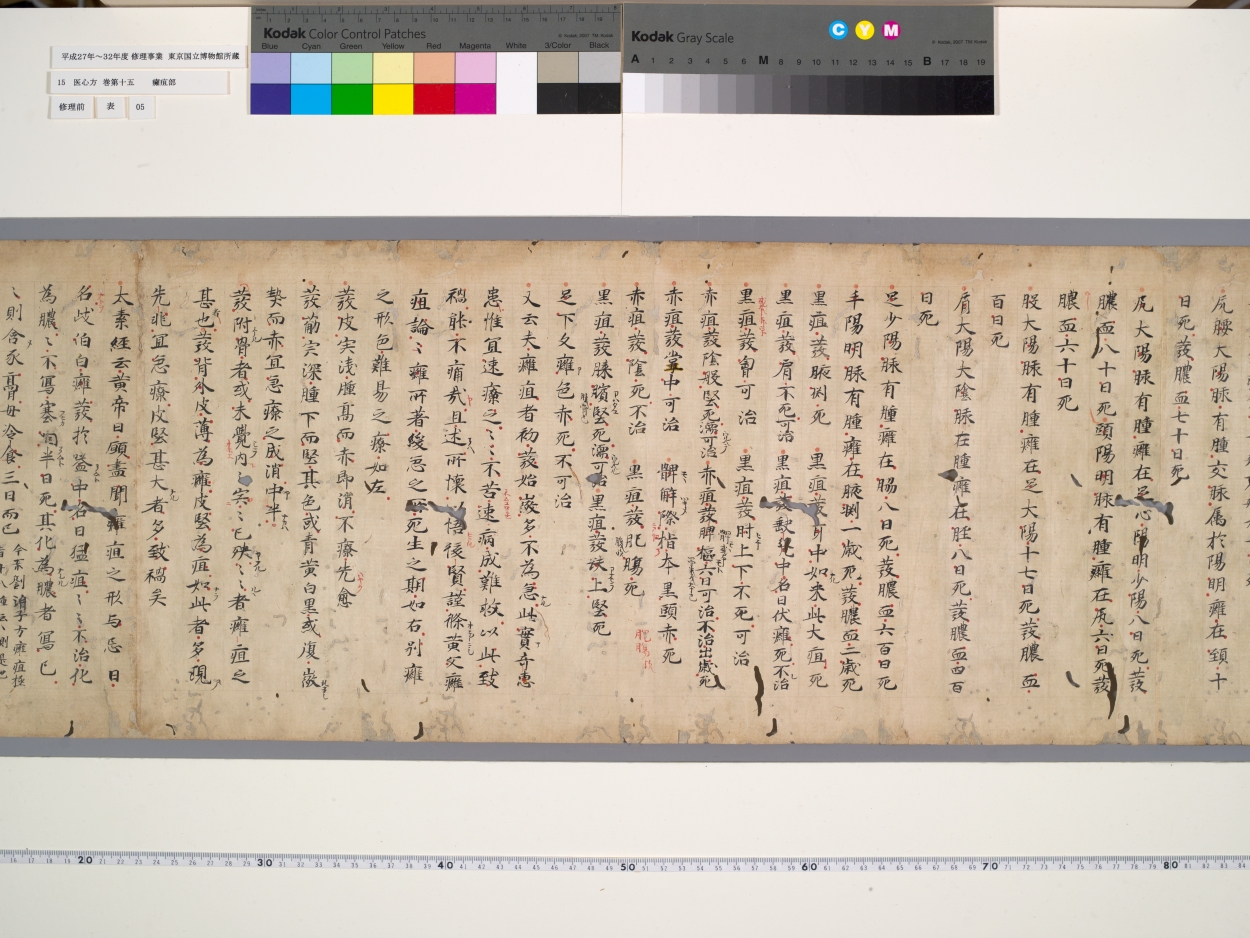 平成27年～32年度 修理事業 東京国立博物館所蔵
15 医心方 巻第十五 癰疽部
修理前 表 05
Kodak Color Control Patches
Blue Cyan Green Yellow Red Magenta White 3/Color Black
Kodak Gray Scale
C Y M
A 1 2 3 4 5 6 M 8 9 10 11 12 13 14 15 B 17 18 19
尻腰大陽脉有腫交脉属於陽明癰在頚十
日死發膿血七十日死
尻大陽脉有腫癰在足心陽明少陽八日死發
膿血八十日死頭陽明脉有腫癰在尻六日死發
膿血六十日死
股大陽脉有腫癰在足大陽十七日死發膿血
百日死
肩大陽大陰脉在腫癰在脛八日死發膿血四百
日死
足少陽脉有腫癰在脇八日死發膿血六百日死
手陽明脉有腫癰在腋渕一歳死發膿血二歳死
黒疽發腋渕死 黒疽發耳中如米此大疽死
黒疽發肩不死可治 黒疽發缺盆中名曰伏癰死不治
黒疽發胷可治 黒疽發肘上下不死可治
赤疽發陰股堅死濡可治 赤疽發髀樞六日可治不治出歳死
赤疽發掌中可治 髀解際指本黒頭赤死
赤疽發陰死不治 黒疽發肥腸死
黒疽發膝臏堅死濡可治黒疽發趺上堅死
足下久癰色赤死不可治
又云夫癰疽者初發始微多不為急此實奇患
患惟宜速療之〻不苦速病成難救以此致
禍能不痛哉且述所懐以悟後賢謹條黄父癰
疽論〻癰所著緩急之死生之期如右別癰
之形色難易之療如左
發皮宍浅腫髙而赤即消不療先愈
發筋宍深腫下而堅其色或青黄白黒或復微
熱而赤宜急療之成消中半
發附骨者或未覺内宍〻已殃〻〻者癰疽之
甚也發背外皮薄為癰皮堅為疽如此者多現
先兆宜急療皮堅甚大者多致禍矣
太素経云黄帝曰願盡聞癰疽之形与忌日
名岐伯曰癰發於嗌中名曰猛疽〻〻不治化
為膿〻不寫塞咽半日死其化為膿者寫已
〻則含豕膏毋冷食三日而已
20 30 40 50 60 70 80